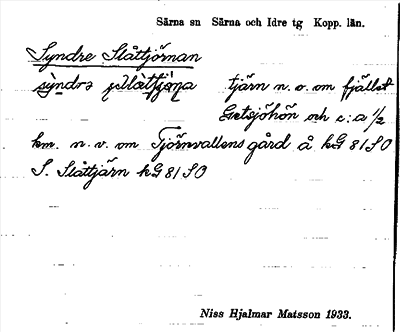 Särna sn Särna och Idre tg Kopp. län.
Syndre Slåttjörnan
tjärn n. o. om fjället
Getsjöhön och c:a 1/2
km. n. v. om Tjörnvallens gård å kG 81 SO
S. Slåttjärn kG 81 SO
Niss Hjalmar Matsson 1933.